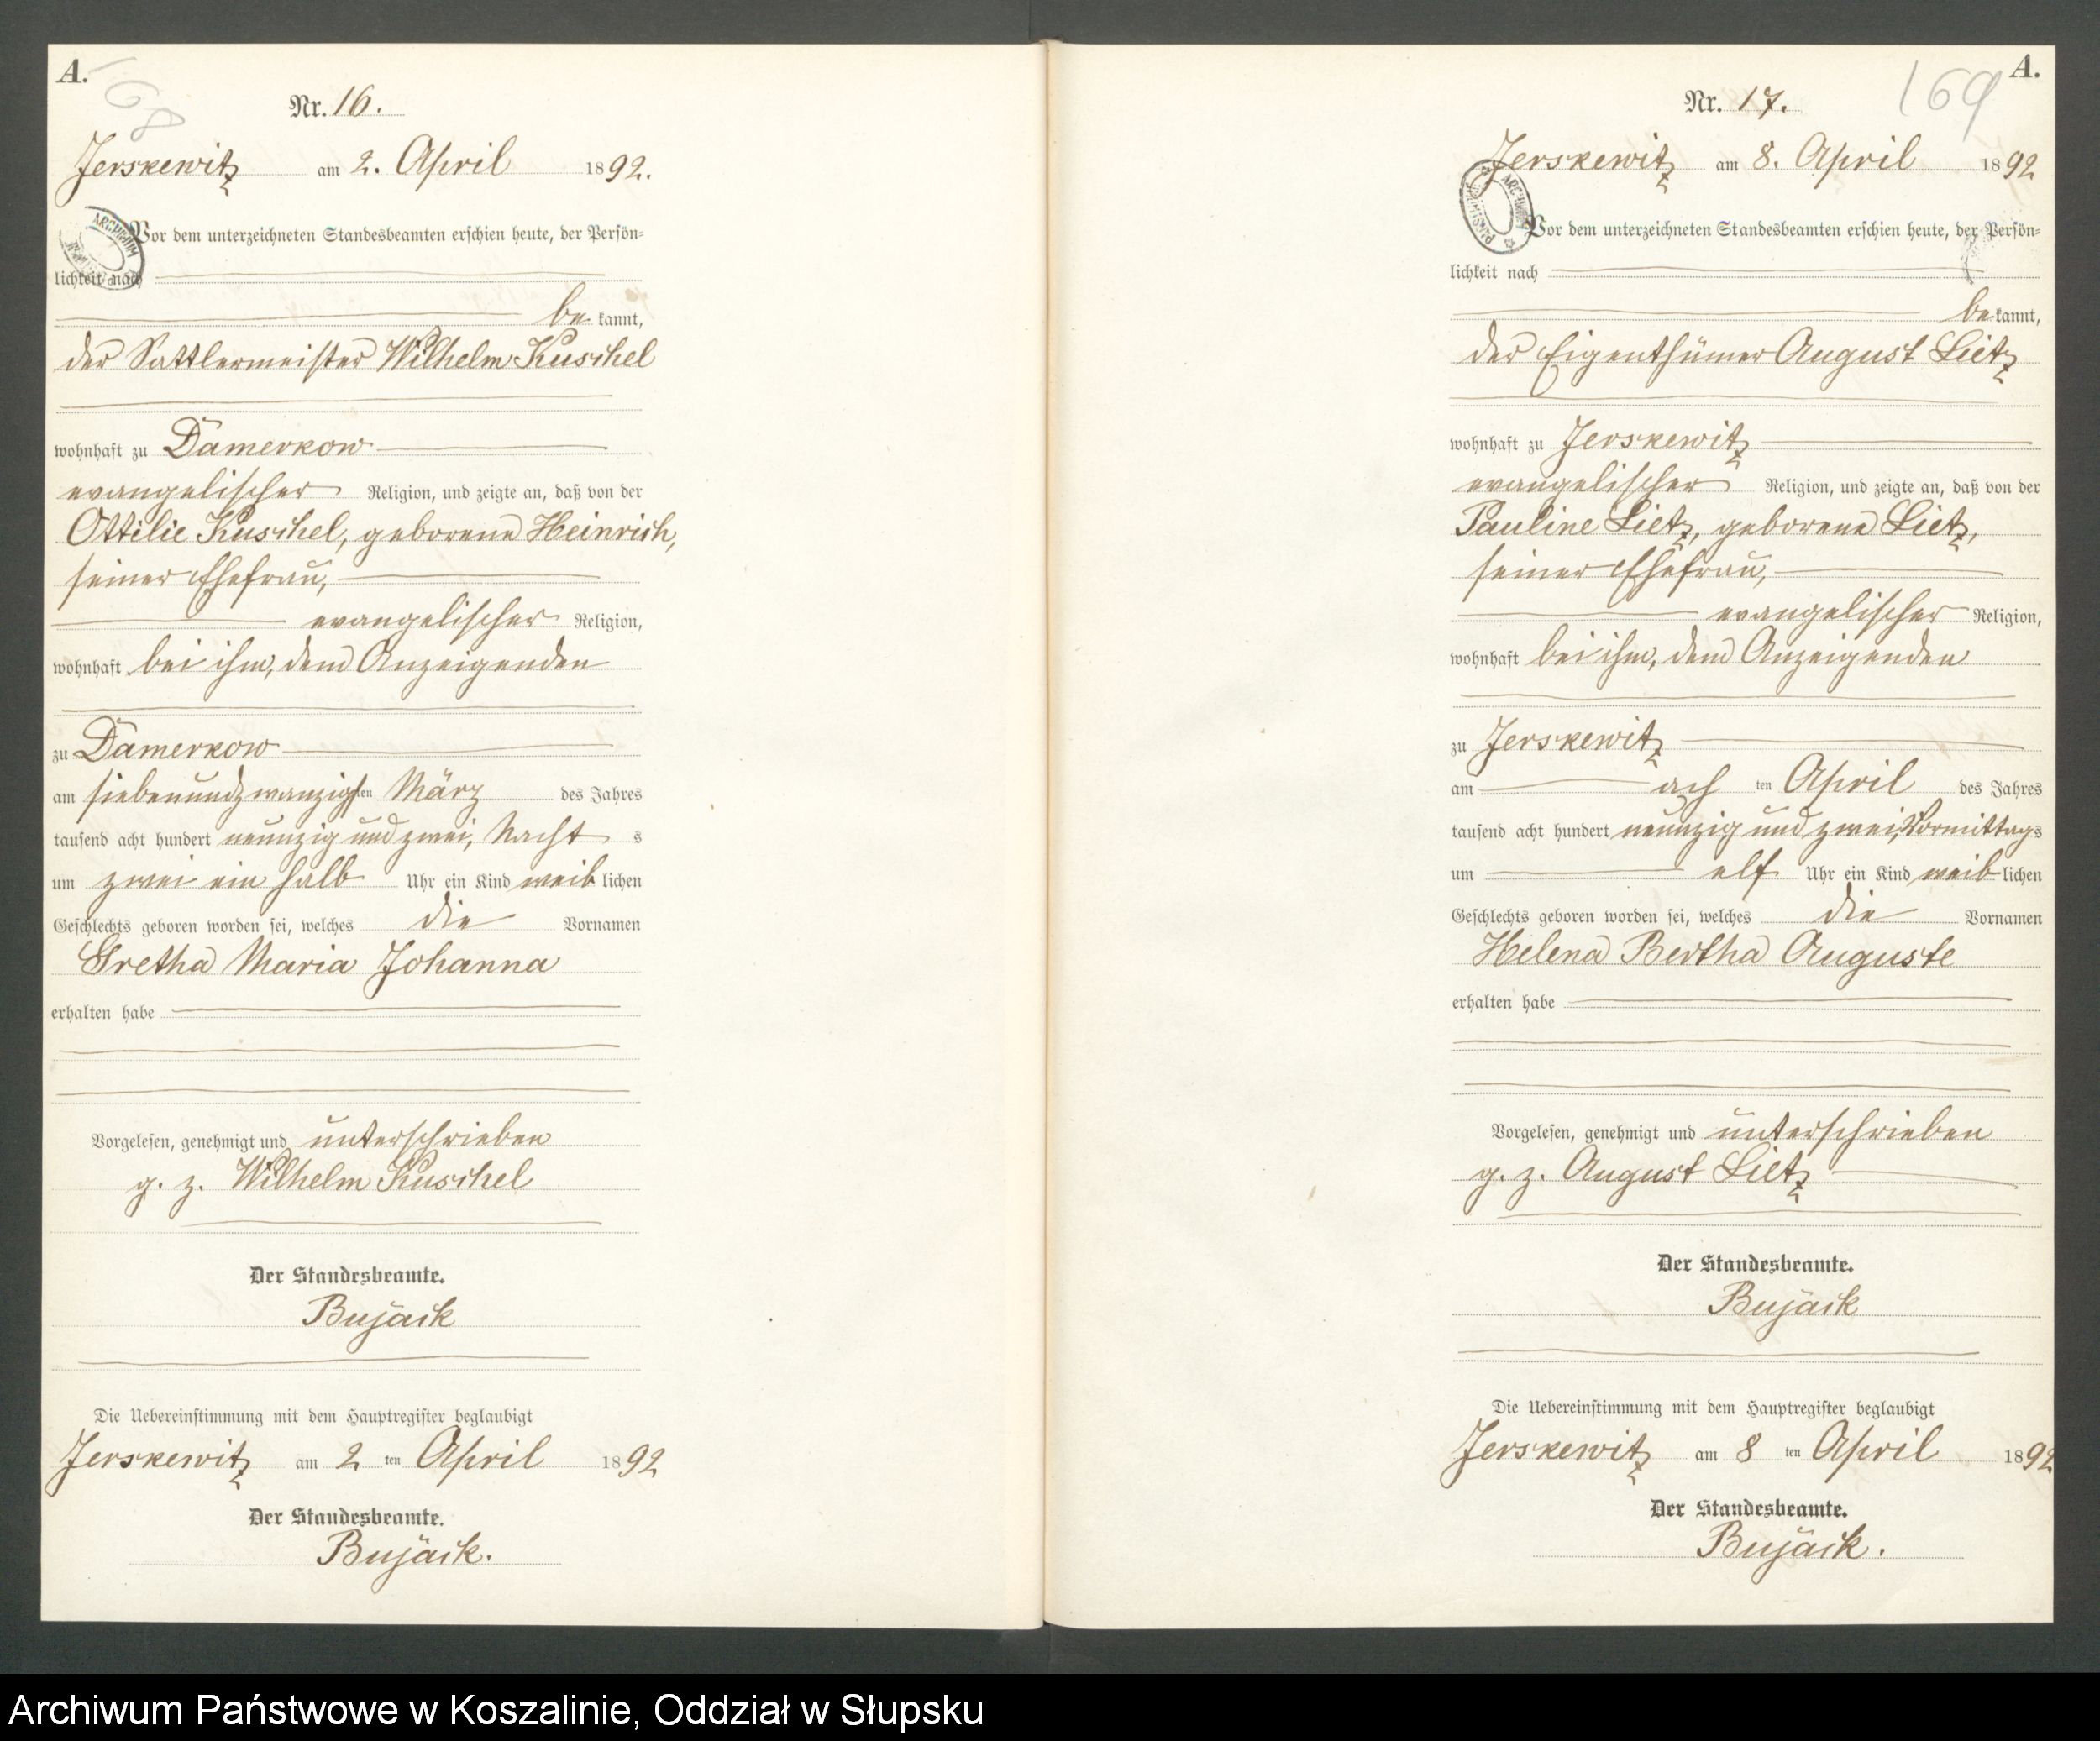 A.
168
Nr. 16.
Jerskewitz am 2. April 1892.
Vor dem unterzeichneten Standesbeamten erschien heute, der Persön-
lichkeit nach
be kannt,
der Sattlermeister Wilhelm Kuschel
wohnhaft zu Damerkow
evangelischer Religion, und zeigte an, daß von der
Ottilie Kuschel, geborene Heinrich,
seiner Ehefrau,
evangelischer Religion,
wohnhaft bei ihm, dem Anzeigenden
zu Damerkow
am siebenundzwanzigsten März des Jahres
tausend acht hundert neunzig und zwei, Nacht s
um zwei ein halb Uhr ein Kind weib lichen
Geschlechts geboren worden sei, welches die Vornamen
Gretha Maria Johanna
erhalten habe
Vorgelesen, genehmigt und unterschrieben
g. z. Wilhelm Kuschel
Der Standesbeamte.
Bujack
Die Uebereinstimmung mit dem Hauptregister beglaubigt
Jerskewitz am 2 ten April 1892
Der Standesbeamte.
Bujack.
A.
169
Nr. 17.
Jerskewitz am 8. April 1892
Vor dem unterzeichneten Standesbeamten erschien heute, der Persön-
lichkeit nach
be kannt,
der Eigenthümer August Lietz
wohnhaft zu Jerskewitz
evangelischer Religion, und zeigte an, daß von der
Pauline Lietz, geborene Lietz,
seiner Ehefrau,
evangelischer Religion,
wohnhaft bei ihm, dem Anzeigenden
zu Jerskewitz
am ach ten April des Jahres
tausend acht hundert neunzig und zwei, Vormittags
um elf Uhr ein Kind weib lichen
Geschlechts geboren worden sei, welches die Vornamen
Helena Bertha Auguste
erhalten habe
Vorgelesen, genehmigt und unterschrieben
g. z. August Lietz
Der Standesbeamte.
Bujack
Die Uebereinstimmung mit dem Hauptregister beglaubigt
Jerskewitz am 8 ten April 1892
Der Standesbeamte.
Bujack.
Archiwum Państwowe w Koszalinie, Oddział w Słupsku